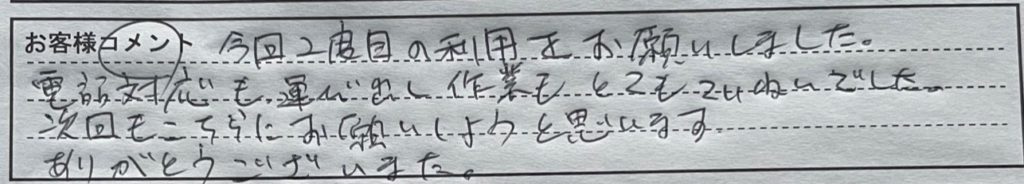 お客様コメント 今回2度目の利用をお願いしました。
電話対応も運び出し作業もとてもていねいでした。
次回もこちらにお願いしようと思います
ありがとうございました。